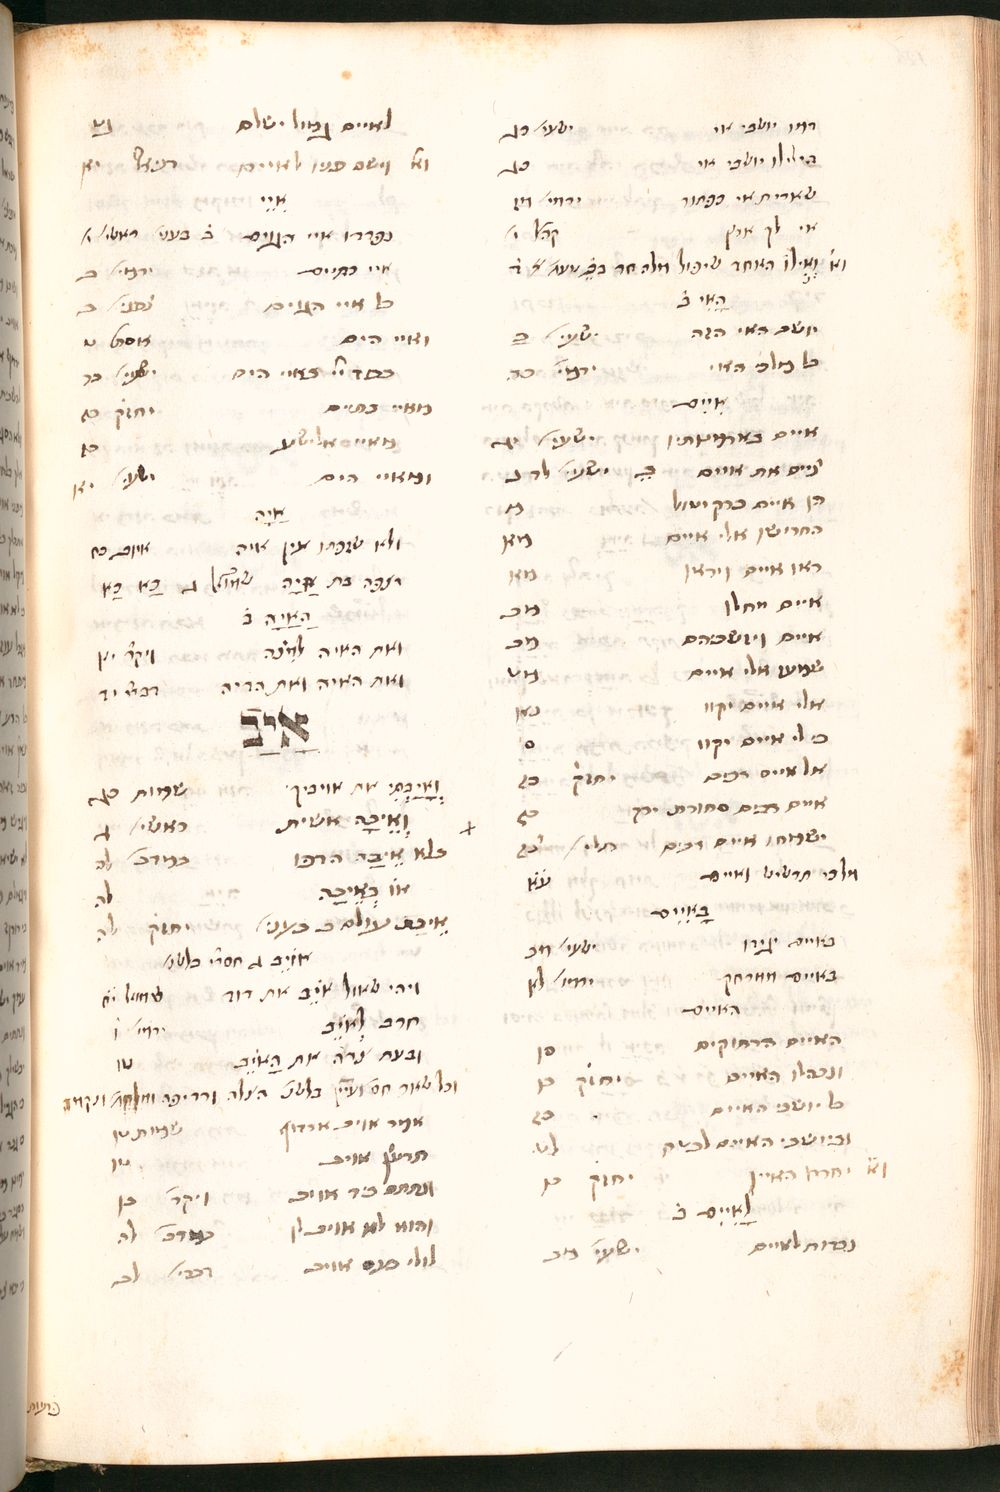 דמו יושבי אי ישעי׳ כג
הילילו יושבי אי כג
שארית אי כפתור ירמי׳ מז
אי לך ארץ קהל׳ י׳
וא׳ וְאִילוֹ האחד שיפול
הָאִי ב׳
יושב האי הזה ישעי׳ כ
כל מלכי האי ירמי׳ כה
אִיִים
איים בארמנותיו ישעי׳ יג
ציים את איים ב׳ ישעי׳ לד נ
הן איים כדק יטול מ
החרישו אלי איים מא
ראו איים ויראו מא
איים תחלו מב
איים ויושביהם מב
שמעו אלי איים מט
אלי איים יקוו נא
כי לי איים יקוו ס
אל איים רבים יחזק׳ כז
איים רבים סחורת ידך כז
ישמחו איים רבים תלי׳ צז
מלכי תרשיש ואיים עב
בָאִיִים
באיים יגידו ישעי׳ מב
באיים ממרחק ירמי׳ לא
האיים
האיים הרחוקים סו
ונבהלו האיים יחזק׳ כו
כל יושבי האיים כז
וביושבי האיים לבטח לט
וא׳ יחרדו האיין יחזק׳ כו
לָאִיִים ב׳
נהרות לאיים ישעי׳ מב
לאיים גמול ישלם נט
וא׳ וישם פניו לאיים דניאל יא
אִיֵי
נפרדו איי הגוים ב׳ בעני׳ ראשי׳ י׳
איי כתיים ירמי׳ ב
כל איי הגוים צפני׳ ב
ואיי הים אסתר י
באיי הים ישעי׳ כד
מאיי כתיים יחזק׳ כז
מאיי אלישע כז
ומאיי הים ישעי׳ יא
אַיָה
ולא שזפתו עין איה איוב כח
רצפה בת אַיָה שמואל ג כא כא
הָאַיָה ב׳
ואת האיה למינה ויקר׳ יא
ואת האיה ואת הדיה דברי׳ יד
אָיַב
וְאָיַבְתִּי את אויביך שמות כג
וְאֵיבָה אשית ראשי׳ ג
בלא אֵיבָה הדפו במדב׳ לה
אוֹ בְאֵיבָה לה
אֵיבַת עולם ב בעני׳ יחזק׳ לה
אֹיֵב ג חסרי׳ בלשני׳
ויהי שאול אֹיֵב את דוד שמואל יח
חרב לְאֹיֵב ירמי׳ ו
ובעת צרה את הָאֹיֵב טו
וכל שאר
אמר אויב ארדוף שמות טו
תרעץ אויב טו
ונתתם ביד אויב ויקר׳ כו
והוא לא אויב לו במדב׳ לה
לולי כעס אויב דברי׳ לב